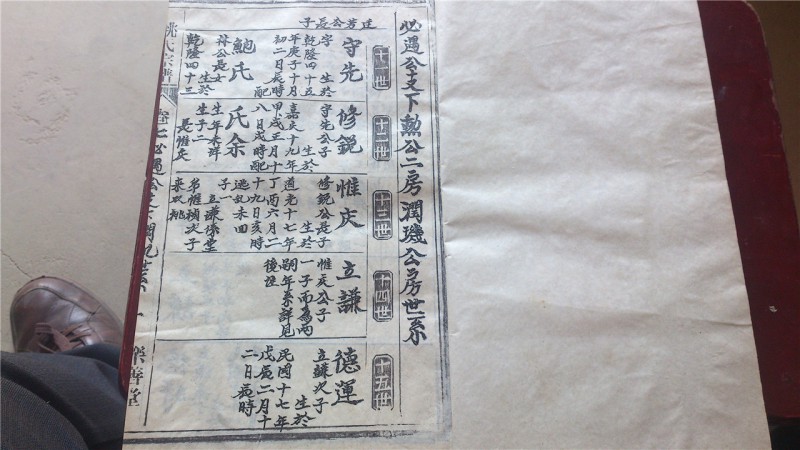 必遇公支下勲公二房潤璣公房世系
十一世
守先
廷芳公長子
字 生於
乾隆四十五
年庚子十月
初二日辰時
配
鮑氏
林公長女
生於
乾隆四十三
十二世
修銳
守先公子
生於
嘉慶十九年
甲戌正月十
八月戌時配
氏余
生年未詳
生子二
長惟庆
十三世
惟庆
修銳公長子
生於
道光十七年
丁酉六月二
十九日亥時
逃乱未回
子一
立謙係堂
弟惟禎次子
來双桃
十四世
立謙
惟庆公子
一子而為兩
嗣年系詳見
後注
十五世
德運
立謙次子
生於
民國十七年
戊辰二月十
二日辰時
姚氏宗譜
卷七必遇公支
樂善堂